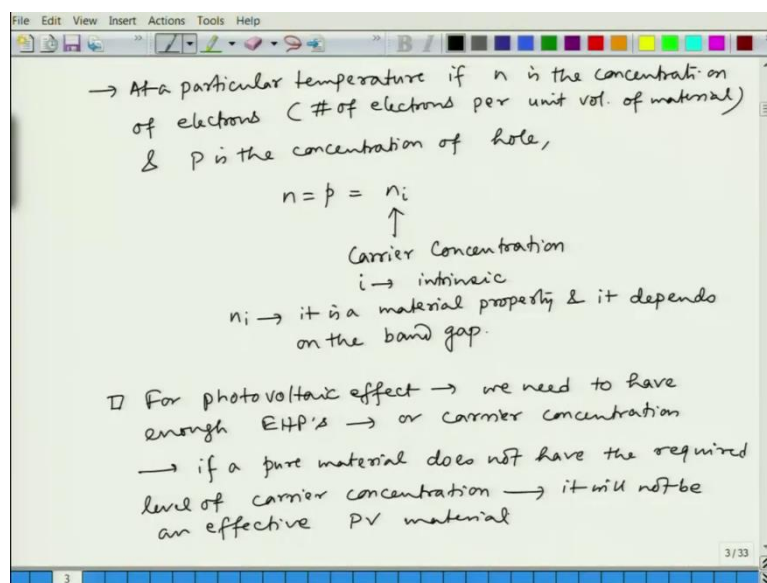 File Edit View Insert Actions Tools Help
B I
→ At a particular temperature if n is the concentration
of electrons (# of electrons per unit vol. of material)
& p is the concentration of hole,
n = p = ni
↑
Carrier Concentration
i → intrinsic
ni → it is a material property & it depends
on the band gap.
□ For photovoltaic effect → we need to have
enough EHP's → or carrier concentration
→ if a pure material does not have the required
level of carrier concentration → it will not be
an effective PV material
3/33
3